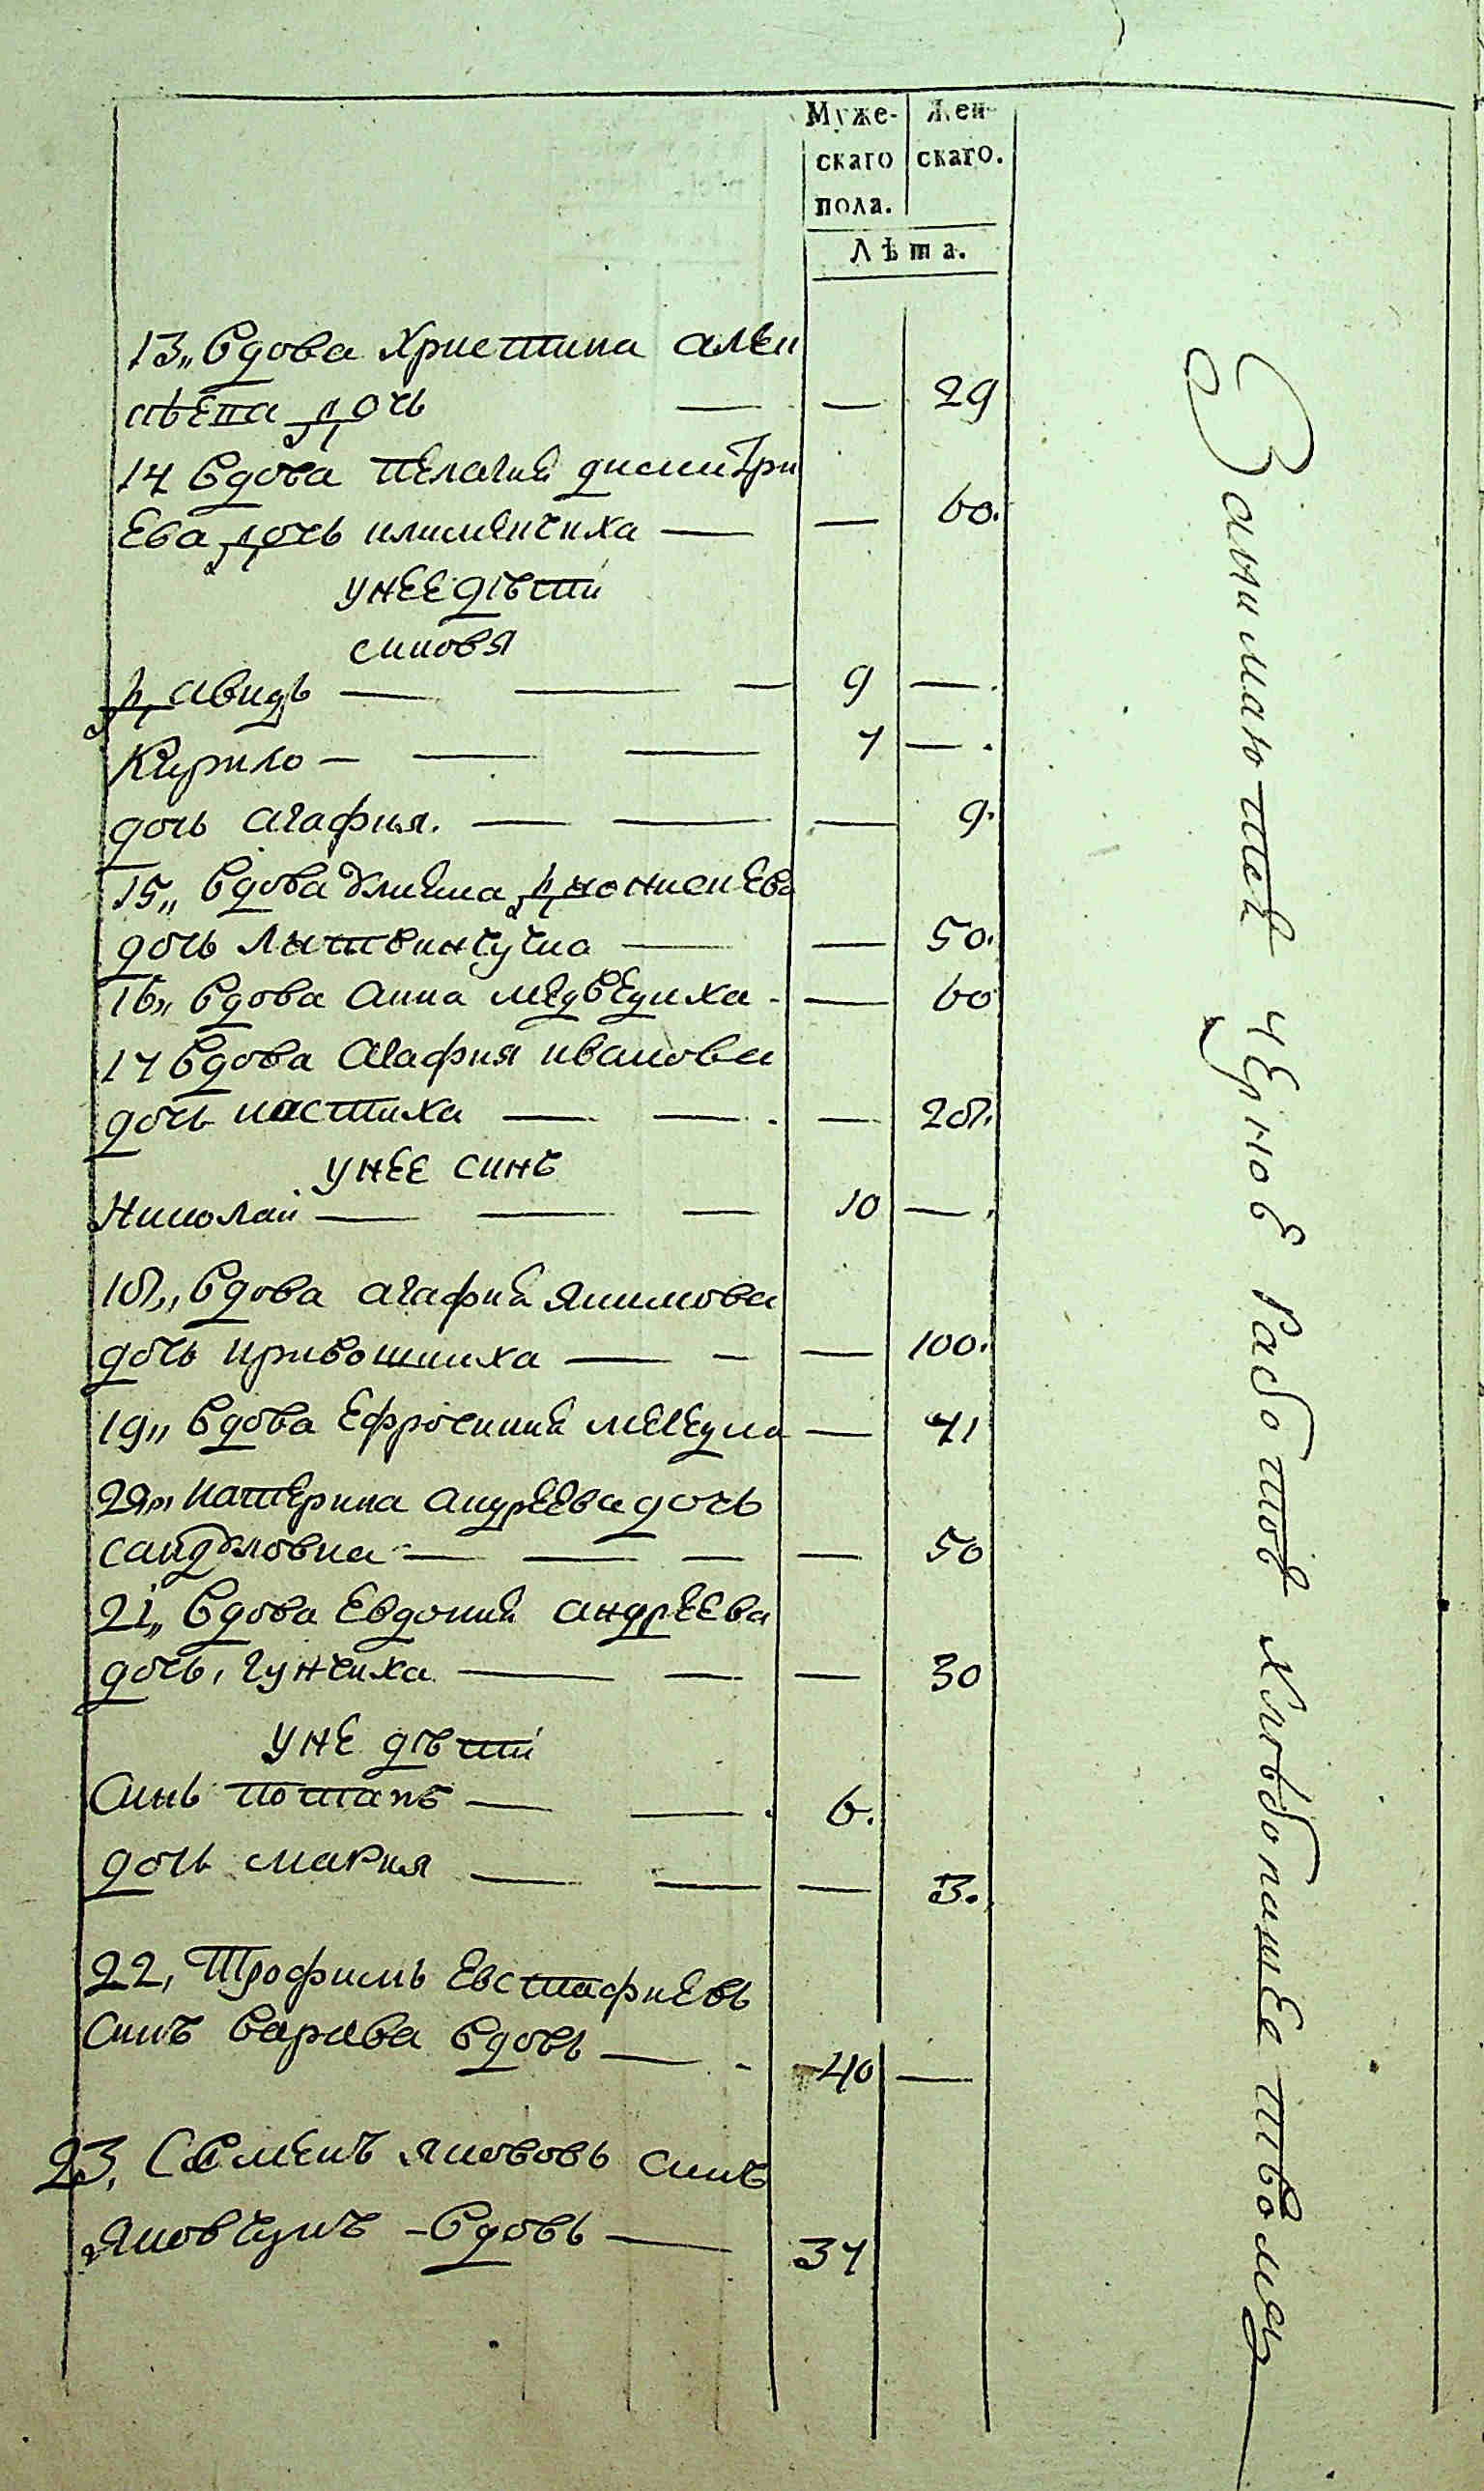 Муже- Жен-
скаго скаго.
пола.
Лѣта.
13„ Вдова Христина
дочь — — 29
14 Вдова Пелагия димитри
Ева дочь климинчиха — — 60.
унее дѣти
синовя
Давидъ — — — 9 —
Кирило — — — 7 —
дочь агафия. — — — 9.
15„ Вдова Дионисиева
дочь Литвинчучка — — 50.
16„ Вдова анна медведиха — 60
17 Вдова Агафия иванова
дочь костиха — — — 28.
унее синъ
Николай — — — 10 —
18„ Вдова агафия якимова
дочь кривошииха — — — 100.
19„ Вдова Ефросиния — 41
20„ катерина андреева дочь
— — — — 50
21„ Вдова Евдокия андреева
дочь, гунчиха — — — 30
уне дѣти
Синъ потапъ — — 6.
дочь мария — — — 3.
22, Трофимъ Евстафиевъ
синъ варава вдовъ — 40 —
23, Семенъ якововъ синъ
яковчукъ – вдовъ — 37
Занимаютцей черноѣ работоѣ хлѣбопашеством